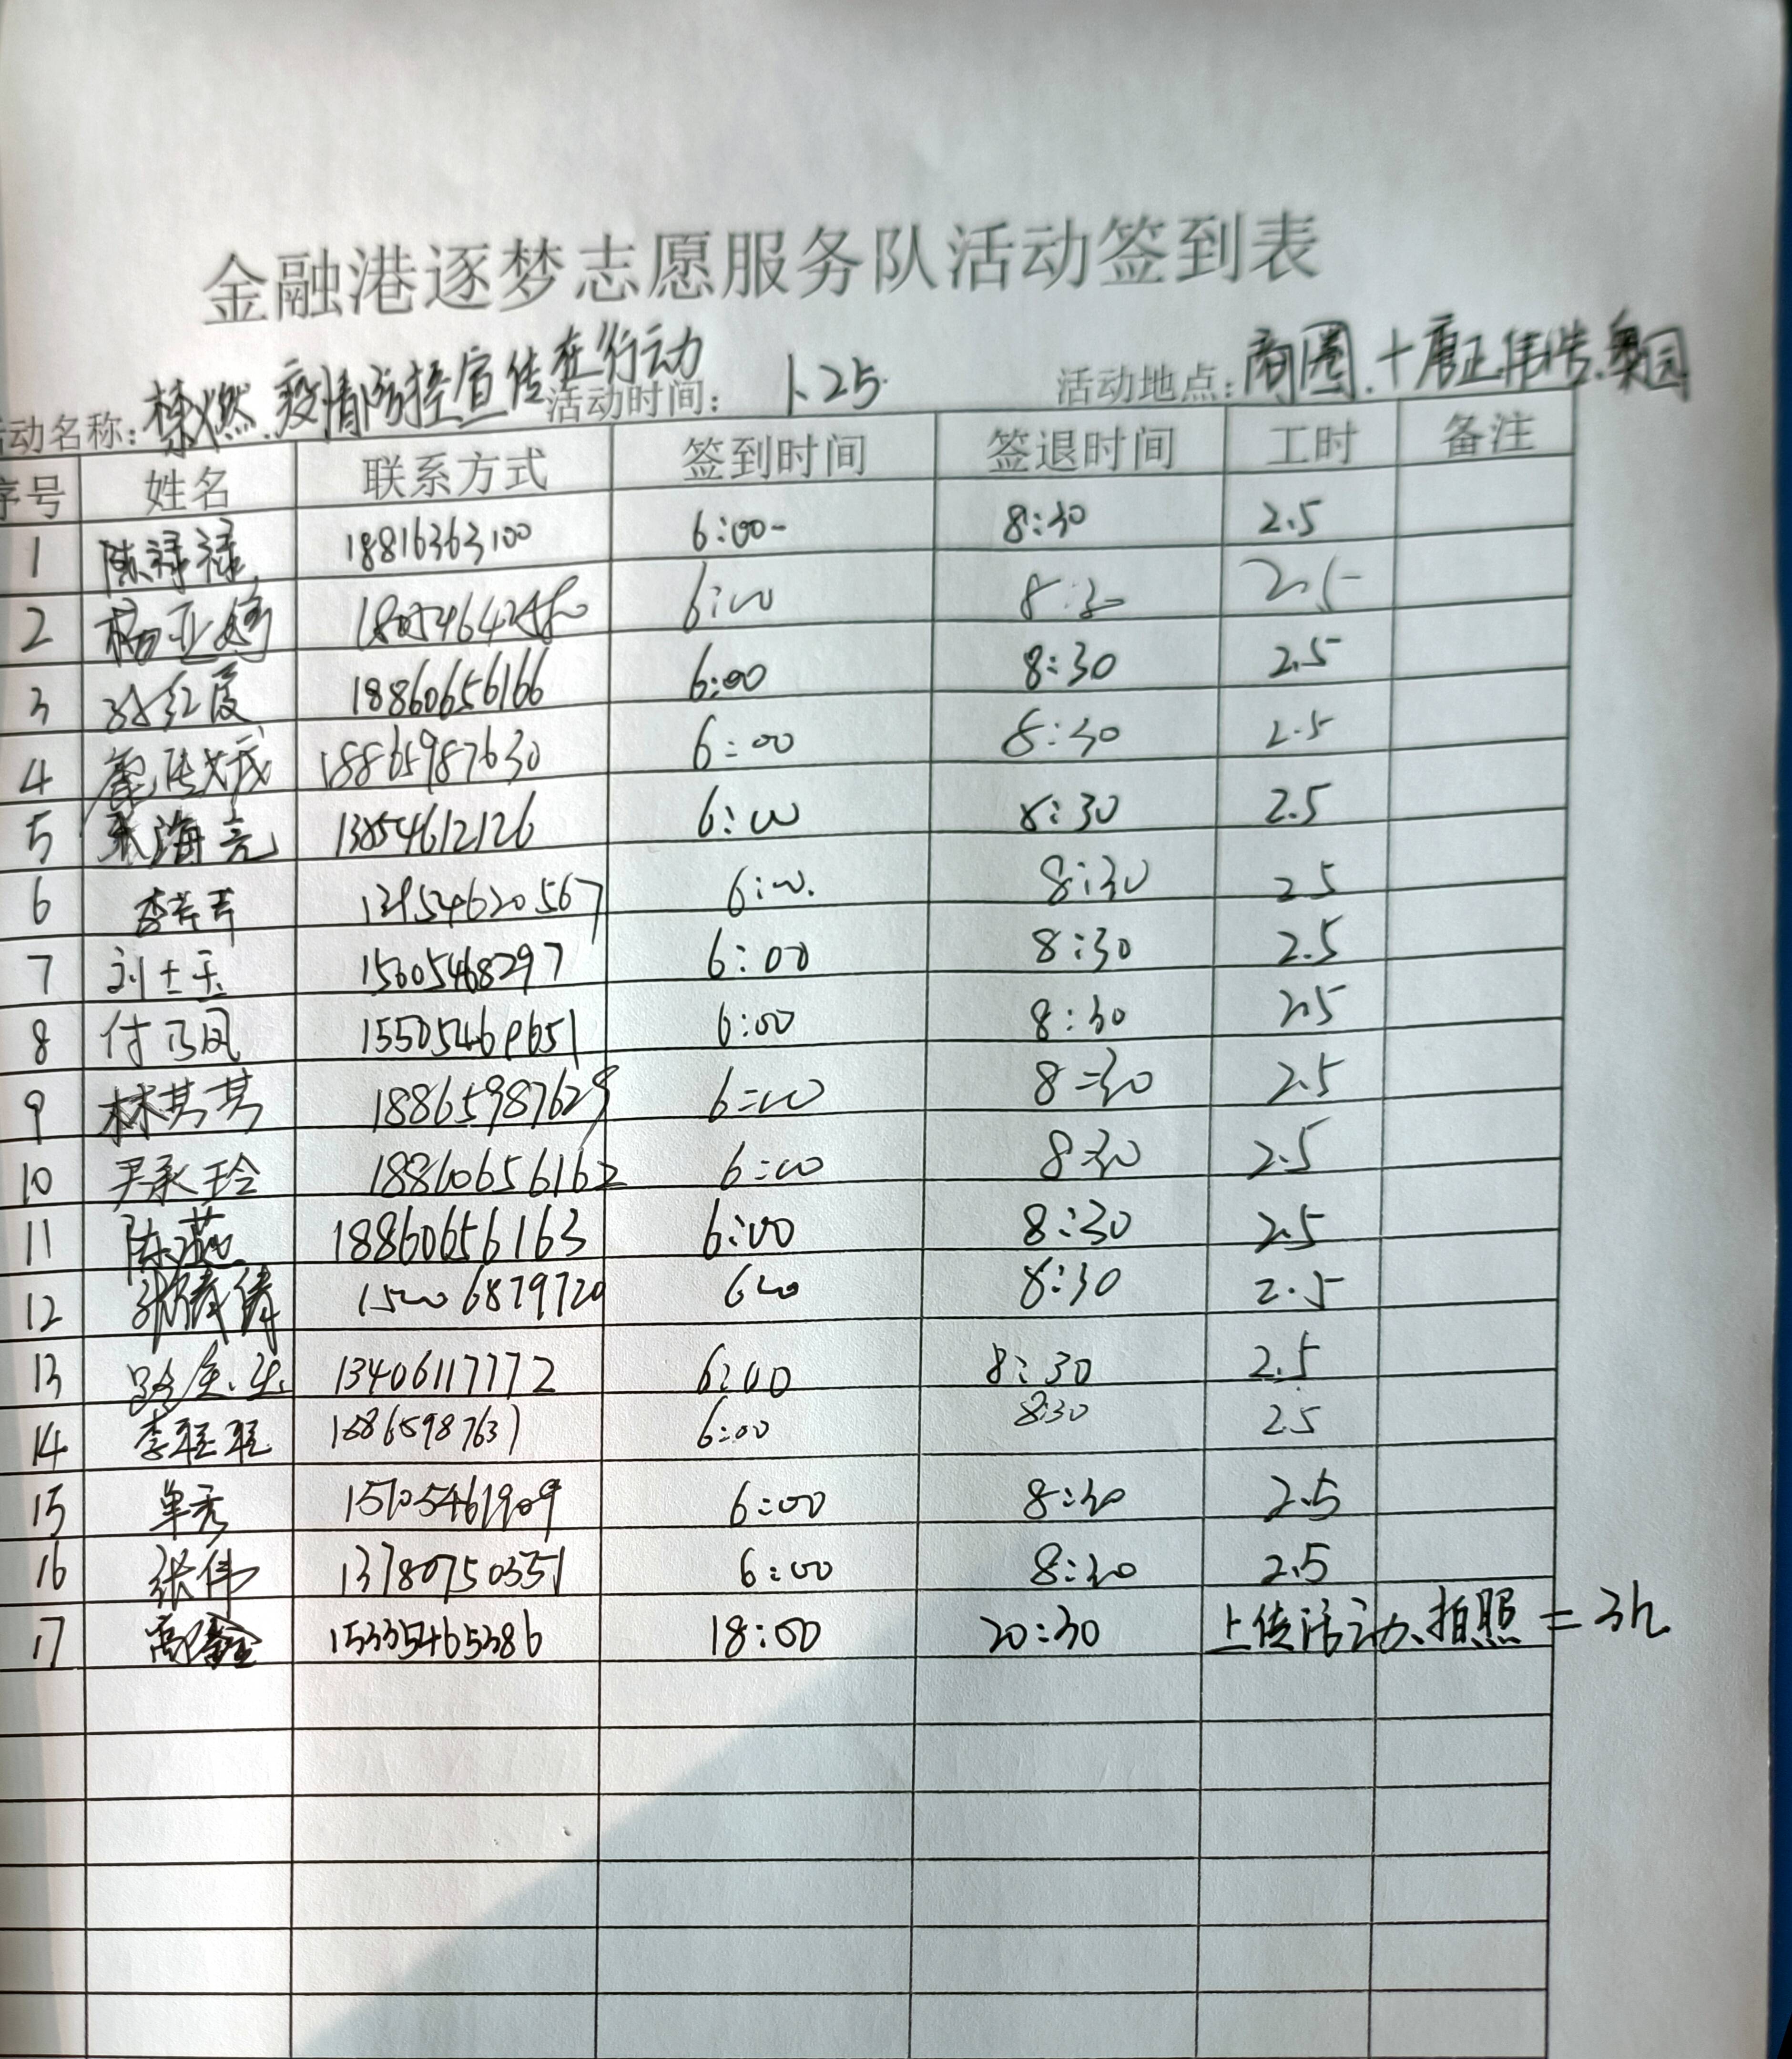 金融港逐梦志愿服务队活动签到表
动名称: 禁燃.疫情防控宣传在行动 活动时间: 1.25. 活动地点: 商圈.十唐正.伟浩.奥园
序号 姓名 联系方式 签到时间 签退时间 工时 备注
1 陈禄禄 18816363100 6:00- 8:30 2.5
2 杨亚婷 6:00 8:30 2.5
3 红霞 18860656166 6:00 8:30 2.5
4 18865987630 6:00 8:30 2.5
5 海亮 13854612126 6:00 8:30 2.5
6 李芹芹 6:00. 8:30 2.5
7 刘士玉 15605468297 6:00 8:30 2.5
8 付乃凤 6:00 8:30 2.5
9 林其其 18865987629 6:00 8:30 2.5
10 尹承玲 18860656162 6:00 8:30 2.5
11 陈燕 18860656163 6:00 8:30 2.5
12 张倩倩 600 8:30 2.5
13 13406117772 6:00 8:30 2.5
14 李 18865987631 6:00 8:30 2.5
15 单秀 6:00 8:30 2.5
16 张伟 13780750351 6:00 8:30 2.5
17 高鑫 15335465386 18:00 20:30 上传活动、拍照=3h